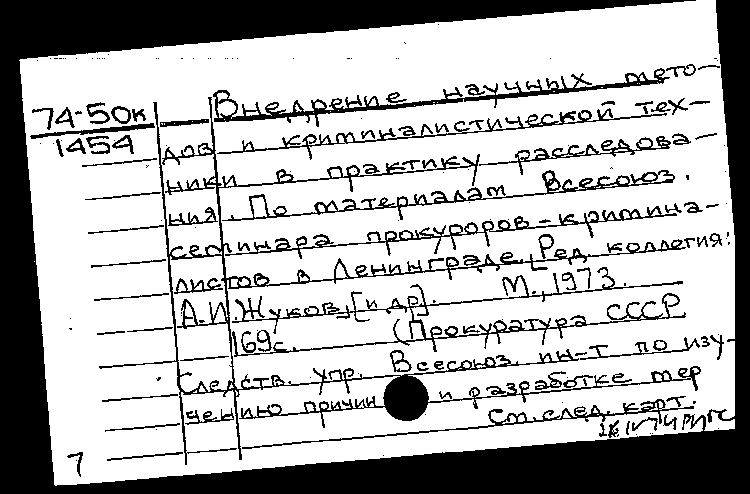 74-50к Внедрение научных мето-
1454 дов и криминалистической тех-
ники в практику расследова-
ния. По материалам Всесоюз.
семинара прокуроров-кримина-
листов в Ленинграде. [Ред. коллегия:
А.И. Жуков, [и др]. М., 1973.
169с. (Прокуратура СССР
Следств. упр. Всесоюз. ин-т по изу-
чению причин и разработке мер
См. след. карт.
7